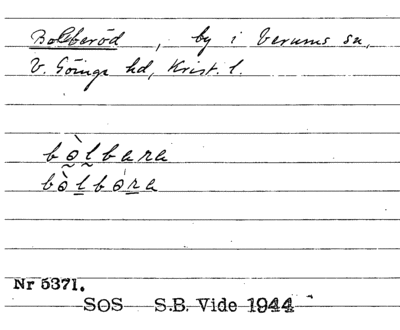 Bolberöd, by i Verums sn,
V. Göinge hd, Krist. l.
bòlbara
bòlbára
Nr 5371.
SOS S.B. Vide 1944